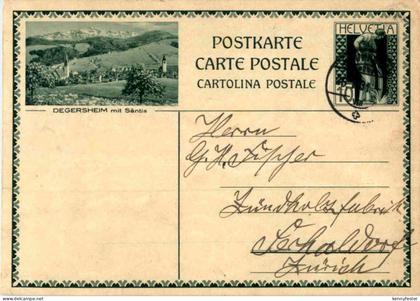 POSTKARTE
CARTE POSTALE
CARTOLINA POSTALE
HELVETIA
10
DEGERSHEIM mit Säntis
Herrn
G. H. Fischer
Zündholzfabrik
Fehraltorf
Zürich